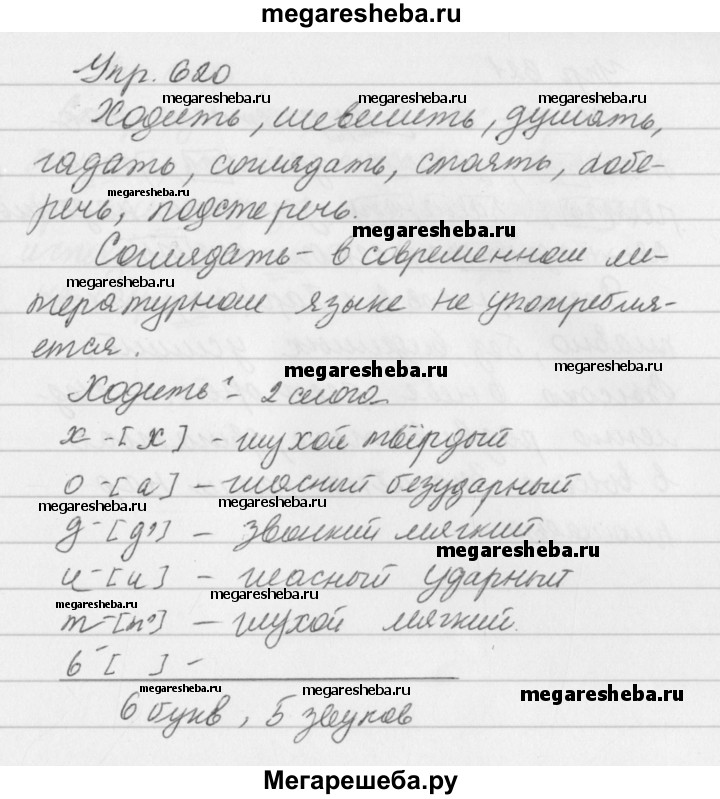 megaresheba.ru
Упр. 620
megaresheba.ru megaresheba.ru megaresheba.ru
Ходить, шевелить, душать,
гадать, соглядать, стоять, побе-
megaresheba.ru
речь, подстеречь.
megaresheba.ru
Соглядать - в современном ли-
megaresheba.ru
тературном языке не употребля-
ется.
megaresheba.ru megaresheba.ru
Ходить - 2 слога
х - [х] - глухой твёрдый
о - [а] - гласный безударный
megaresheba.ru megaresheba.ru
д - [д'] - звонкий мягкий
megaresheba.ru
и - [и] - гласный ударный
megaresheba.ru megaresheba.ru
т - [т'] - глухой мягкий.
ь - [ ] -
megaresheba.ru megaresheba.ru megaresheba.ru
6 букв, 5 звуков
Мегарешеба.ру